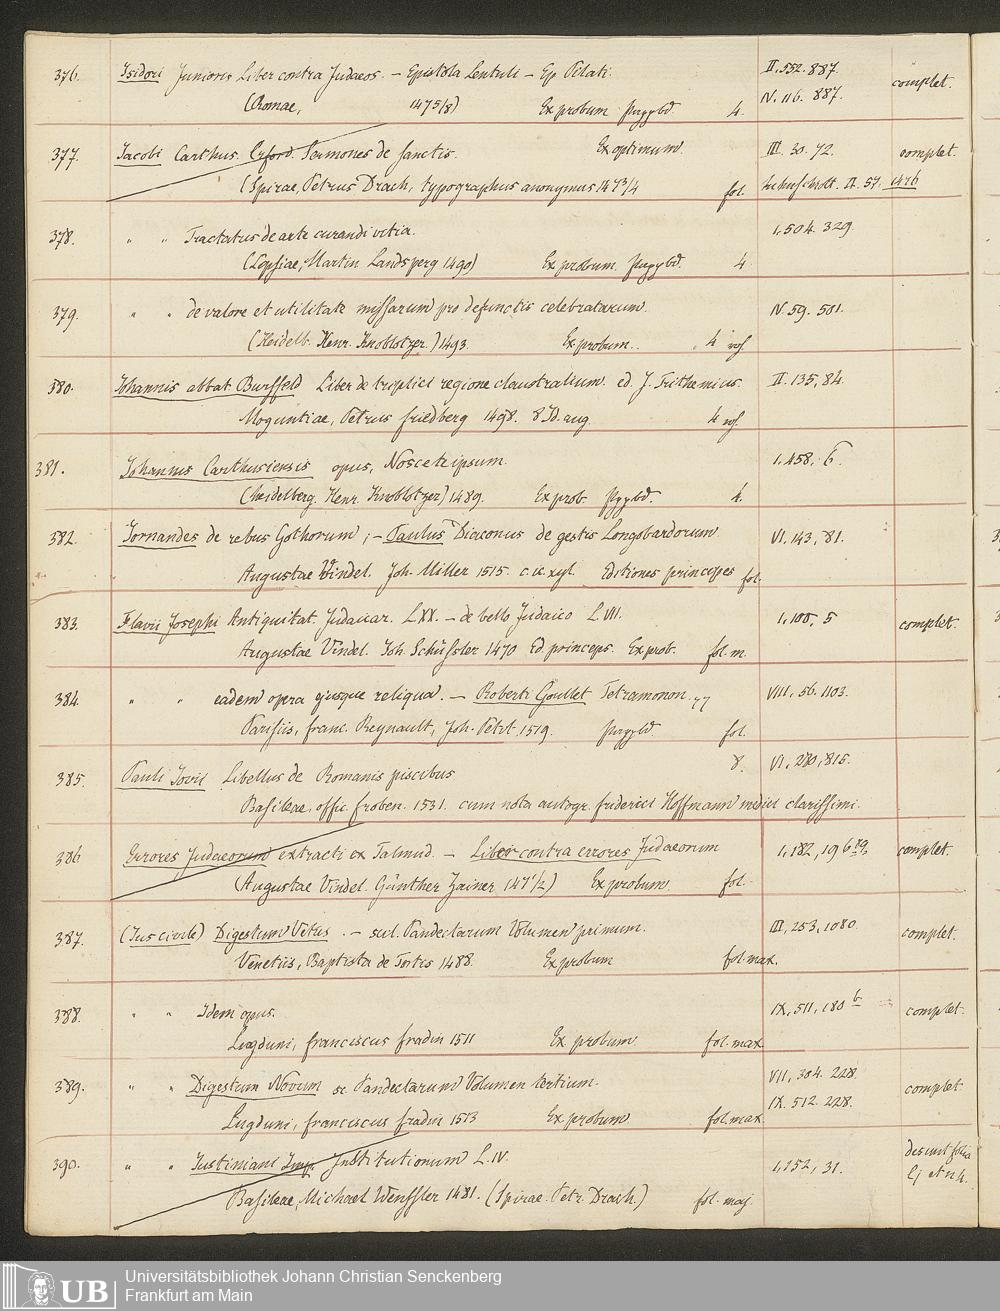 376. Isidori Junioris Liber contra Judaeos. – Epistola Lentuli – Ep. Pilati. II. 352. 887. complet.
(Romae, 1475/8) Ex probum 4. IV. 116. 887.
377. Jacobi Carthus. Erford. Sermones de sanctis. Ex optimum. III. 30. 72. complet.
(Spirae, Petrus Drach, typographus anonymus 1473/4 fol. II. 57. 1476
378. " " Tractatus de arte curandi vitia. I. 504. 329.
(Lypsiae, Martin Landsperg 1490) Ex probum 4
379. " " de valore et utilitate missarum pro defunctis celebratarum. IV. 59. 501.
(Heidelb. Henr. Knoblotzer.) 1493. Ex probum. 4
380. Johannis abbat Bursfeld Liber de triplici regione claustralium. ed. J. Trithemius. II. 135, 84.
Moguntiae, Petrus friedberg 1498. 8 Id. aug. 4
381. Johannis Carthusiensis opus, Nosce teipsum. I. 458, 6.
(heidelberg. Henr. Knoblotzer) 1489. Ex prob. 4.
382. Jornandes de rebus Gothorum; – Paulus Diaconus de gestis Longobardorum VI. 143, 81.
Augustae Vindel. Joh. Miller 1515. c. ic. xyl. Editiones principes fol.
383. Flavii Josephi Antiquitat. Judaicar. L XX. – de bello Judaico L. VII. I, 100, 5 complet.
Augustae Vindel. Joh. Schüssler 1470 Ed. princeps. Ex prob. fol. m.
384. " " eadem opera ejusque reliqua. – Roberti Goullet Tetramonon. VIII, 56. 1103.
Parisiis, franc. Reynault, Joh. Petit. 1519. fol.
385. Pauli Jovii Libellus de Romanis piscibus 8. VI, 280, 815.
Basileae, offic. froben. 1531. cum nota autogr. friderici Hoffmann medici clarissimi.
386 Errores Judaeorum extracti ex Talmud. – Liber contra errores Judaeorum I, 182, 196 complet.
(Augustae Vindel. Günther Zainer 1471/2) Ex probum. fol.
387. (Jus civile) Digestum Vetus. – seu Pandectarum Volumen primum. III, 253, 1080. complet.
Venetiis, Baptista de Tortis 1488. Ex probum fol. max.
388. " " Idem opus. IX, 511, 180 b. complet.
Lugduni, franciscus fradin 1511 Ex probum fol. max
389. " " Digestum Novum s. Pandectarum Volumen tertium. VII, 304. 228. complet.
Lugduni, franciscus fradin 1513 Ex probum fol. max. IX. 512. 228.
390. " " Justiniani Imp. Institutionum L. IV. I, 152, 31. desunt folia
Basileae, Michael Wenssler 1481. (Spirae. Petr. Drach.) fol. maj.
UB Universitätsbibliothek Johann Christian Senckenberg
Frankfurt am Main